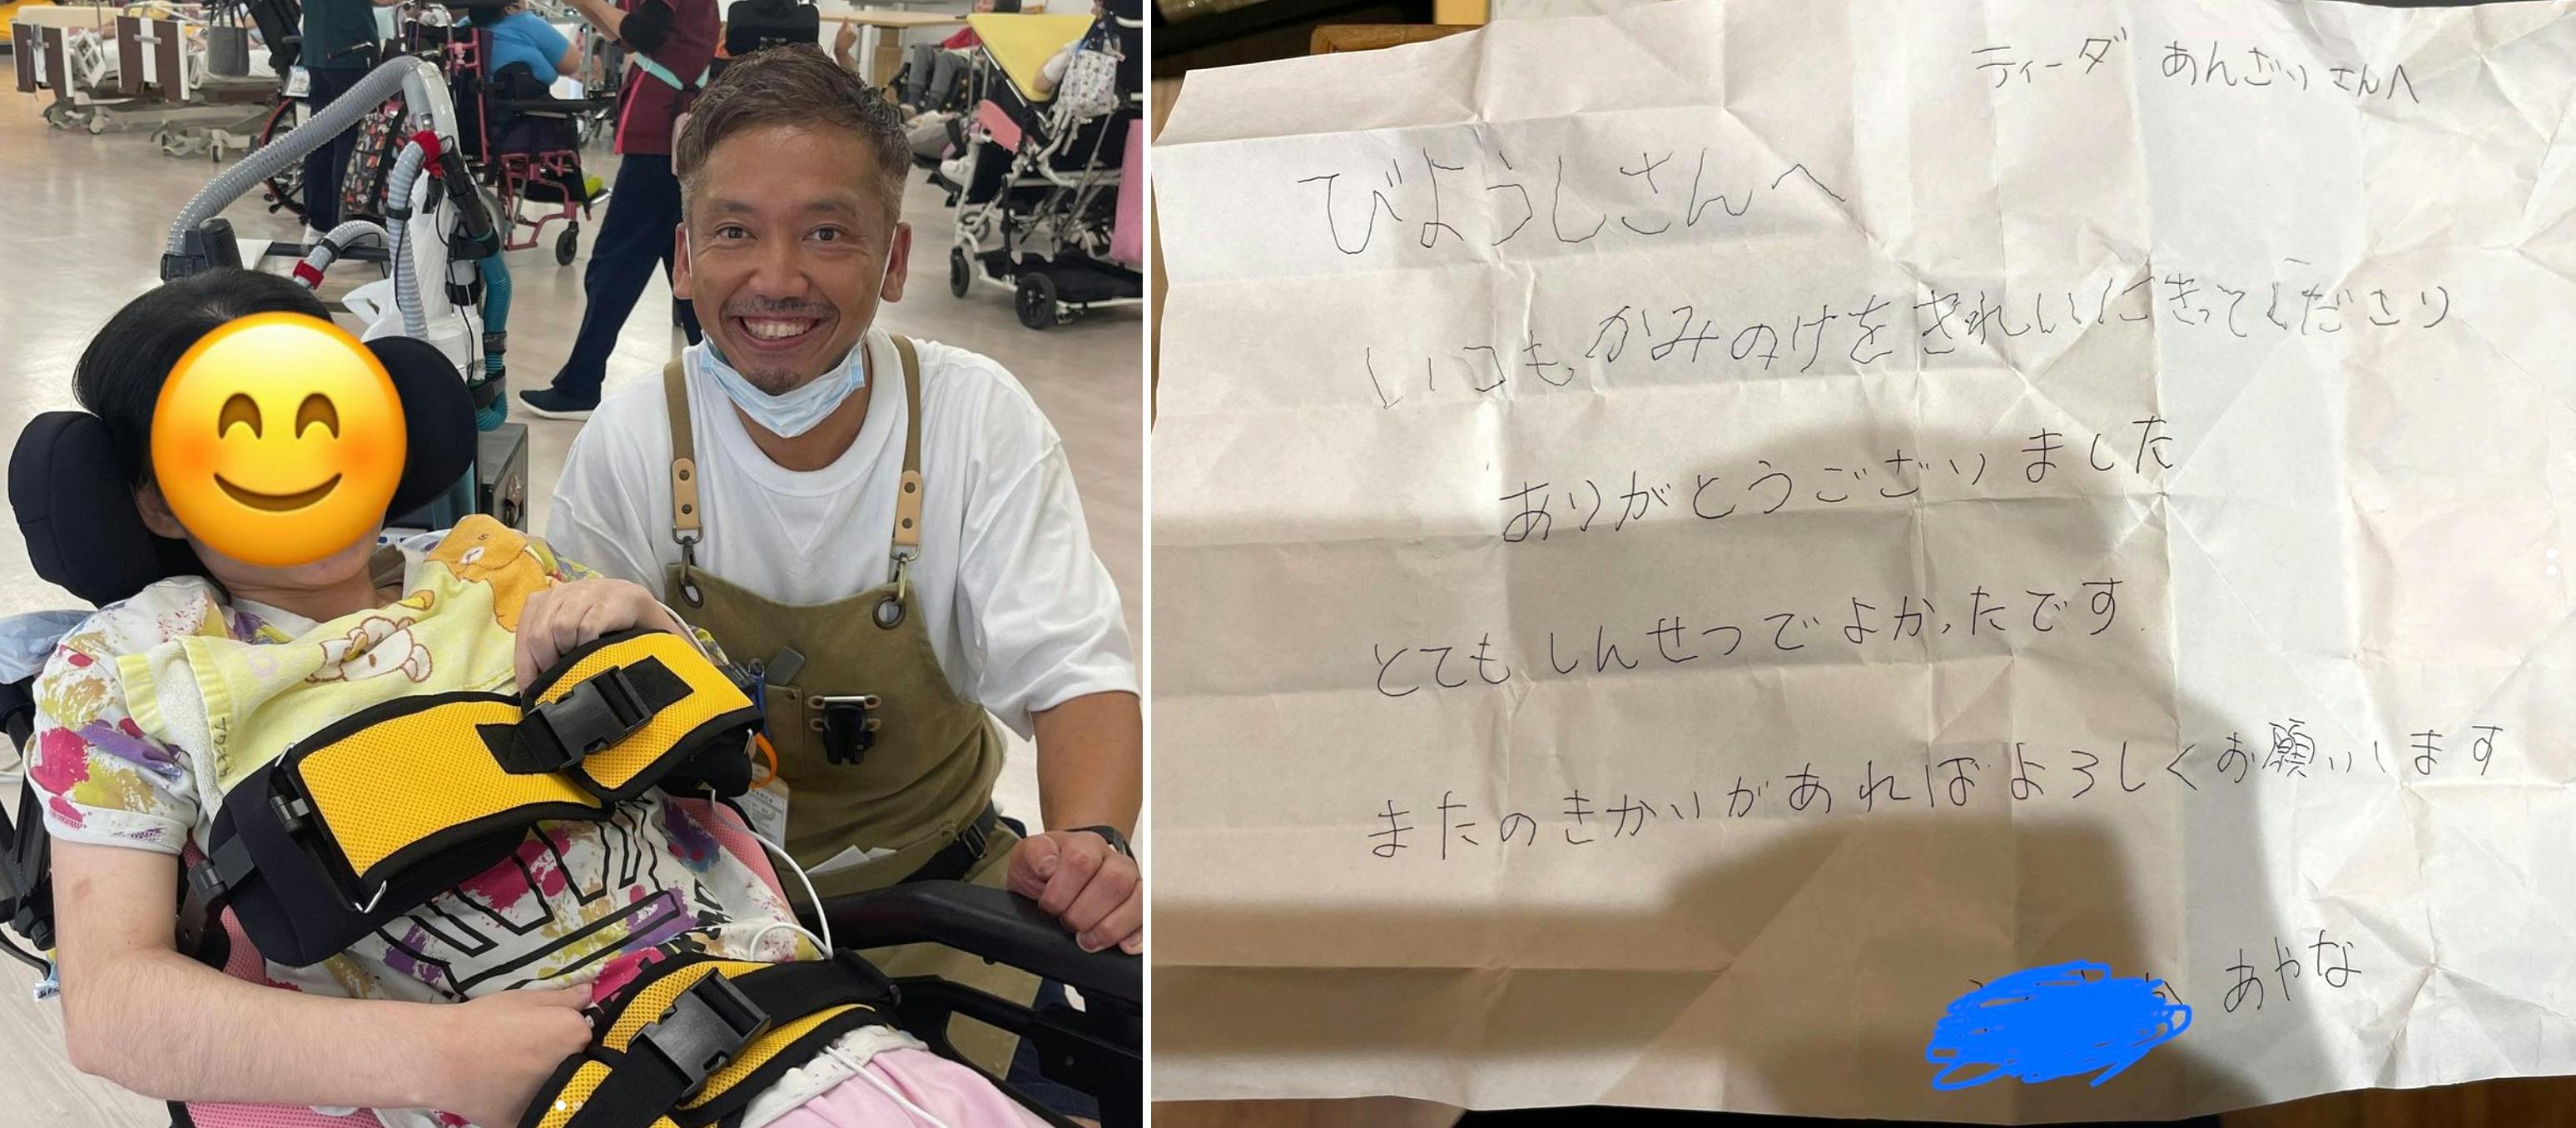 ティーダ あんざいさんへ
びようしさんへ
いつもかみのけをきれいにきってくださり
ありがとうございました
とてもしんせつでよかったです
またのきかいがあればよろしくお願いします
あやな